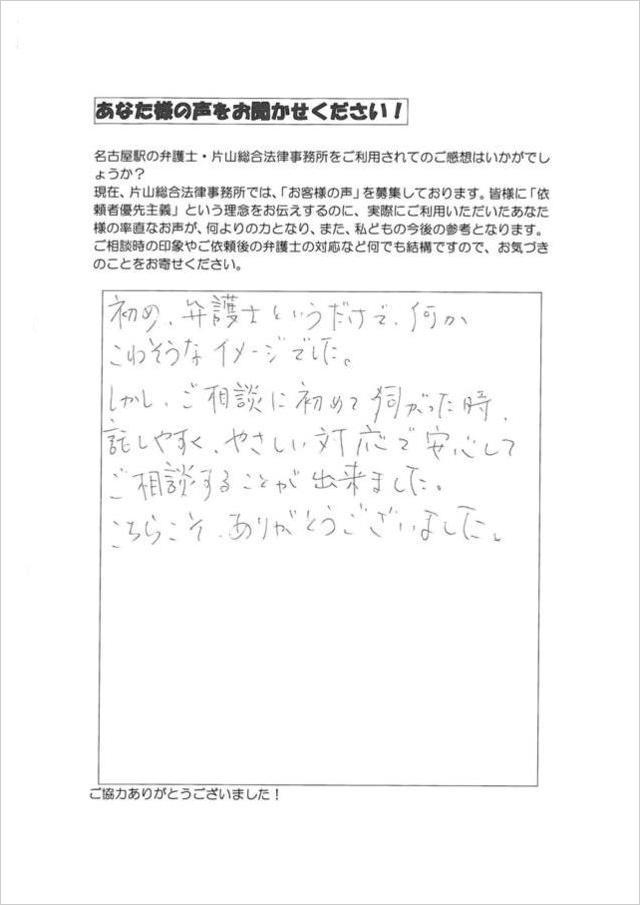 あなた様の声をお聞かせください！
名古屋駅の弁護士・片山総合法律事務所をご利用されてのご感想はいかがでし
ょうか？
現在、片山総合法律事務所では、「お客様の声」を募集しております。皆様に「依
頼者優先主義」という理念をお伝えするのに、実際にご利用いただいたあなた
様の率直なお声が、何よりの力となり、また、私どもの今後の参考となります。
ご相談時の印象やご依頼後の弁護士の対応など何でも結構ですので、お気づき
のことをお寄せください。
初め、弁護士というだけで、何か
こわそうなイメージでした。
しかし、ご相談に初めて伺がった時、
話しやすく、やさしい対応で安心して
ご相談することが出来ました。
こちらこそ、ありがとうございました。
ご協力ありがとうございました！